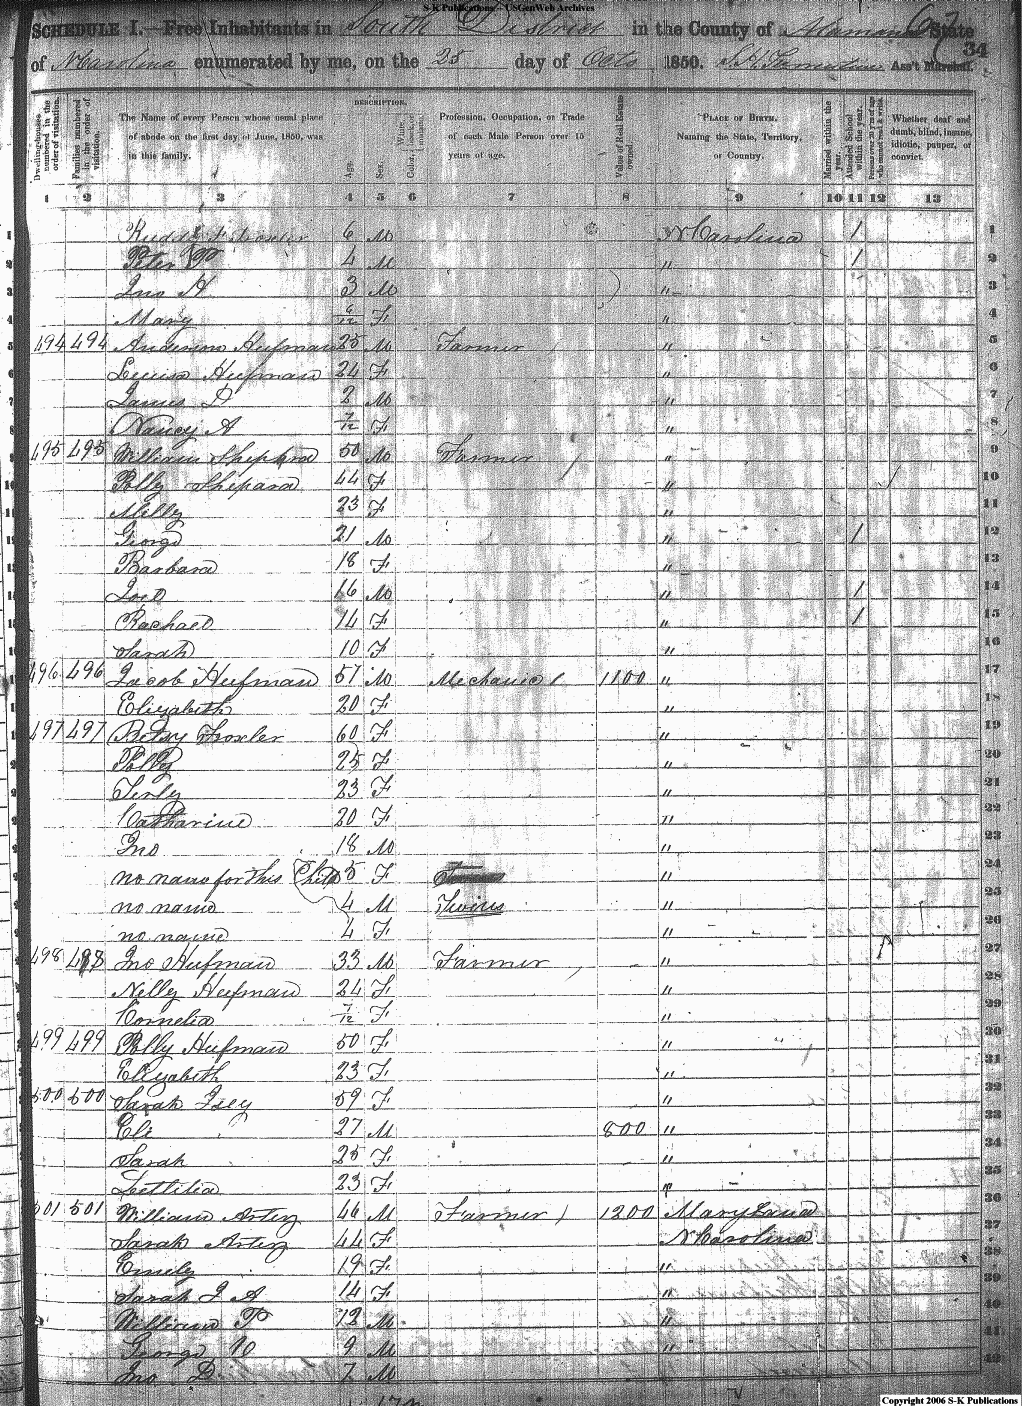 S-K Publications - USGenWeb Archives
SCHEDULE I.—Free Inhabitants in South District in the County of Alamance State 67
of N Carolina enumerated by me, on the 25 day of Octo 1850. Ass't Marshal. 34
Dwelling-houses numbered in the order of visitation.
Families numbered in the order of visitation.
The Name of every Person whose usual place of abode on the first day of June, 1850, was in this family.
DESCRIPTION.
Age.
Sex.
White, black, or mulatto.
Color,
Profession, Occupation, or Trade of each Male Person over 15 years of age.
Value of Real Estate owned.
PLACE OF BIRTH, Naming the State, Territory, or Country.
Married within the year.
Attended School within the year.
Persons over 20 y'rs of age who cannot read & write.
Whether deaf and dumb, blind, insane, idiotic, pauper, or convict.
1 2 3 4 5 6 7 8 9 10 11 12 13
1 Troxler 6 M N Carolina 1 1
2 Peter P 4 M " 1 2
3 Jno H 3 M " 3
4 Mary 6/12 F " 4
494 494 Anderson Hufman 25 M Farmer " 5
Louisa Hufman 24 F " 6
James D 2 M " 7
Nancy A 7/12 F " 8
495 495 William Shepard 50 M Farmer " 9
Polly Shepard 44 F " 10
Milly 23 F " 11
George 21 M " 1 12
Barbara 18 F " 13
Joel 16 M " 1 14
Rachael 14 F " 1 15
Sarah 10 F " 16
496 496 Jacob Hufman 51 M Mechanic 1100 " 17
Elizabeth 20 F " 18
497 497 Betsy Troxler 60 F " 19
Polly 25 F " 20
23 F " 21
Catharine 20 F " 22
Jno 18 M " 23
no name for this Child 5 F " 24
no name 4 M Twins " 25
no name 4 F " 26
498 498 Jno Hufman 33 M Farmer " 27
Nelly Hufman 24 F " 28
Cornelia 7/12 F " 29
499 499 Polly Hufman 50 F " 30
Elizabeth 23 F " 31
500 500 Sarah Isey 59 F " 32
Eli 27 M 800 " 33
Sarah 25 F " 34
Lettitia 23 F " 35
501 501 William Artez 46 M Farmer 1200 Maryland 36
Sarah Artez 44 F N Carolina 37
Emely 19 F " 38
Sarah J A 14 F " 39
William P 12 M " 40
George W 9 M " 41
Jno D 7 M 42
Copyright 2006 S-K Publications